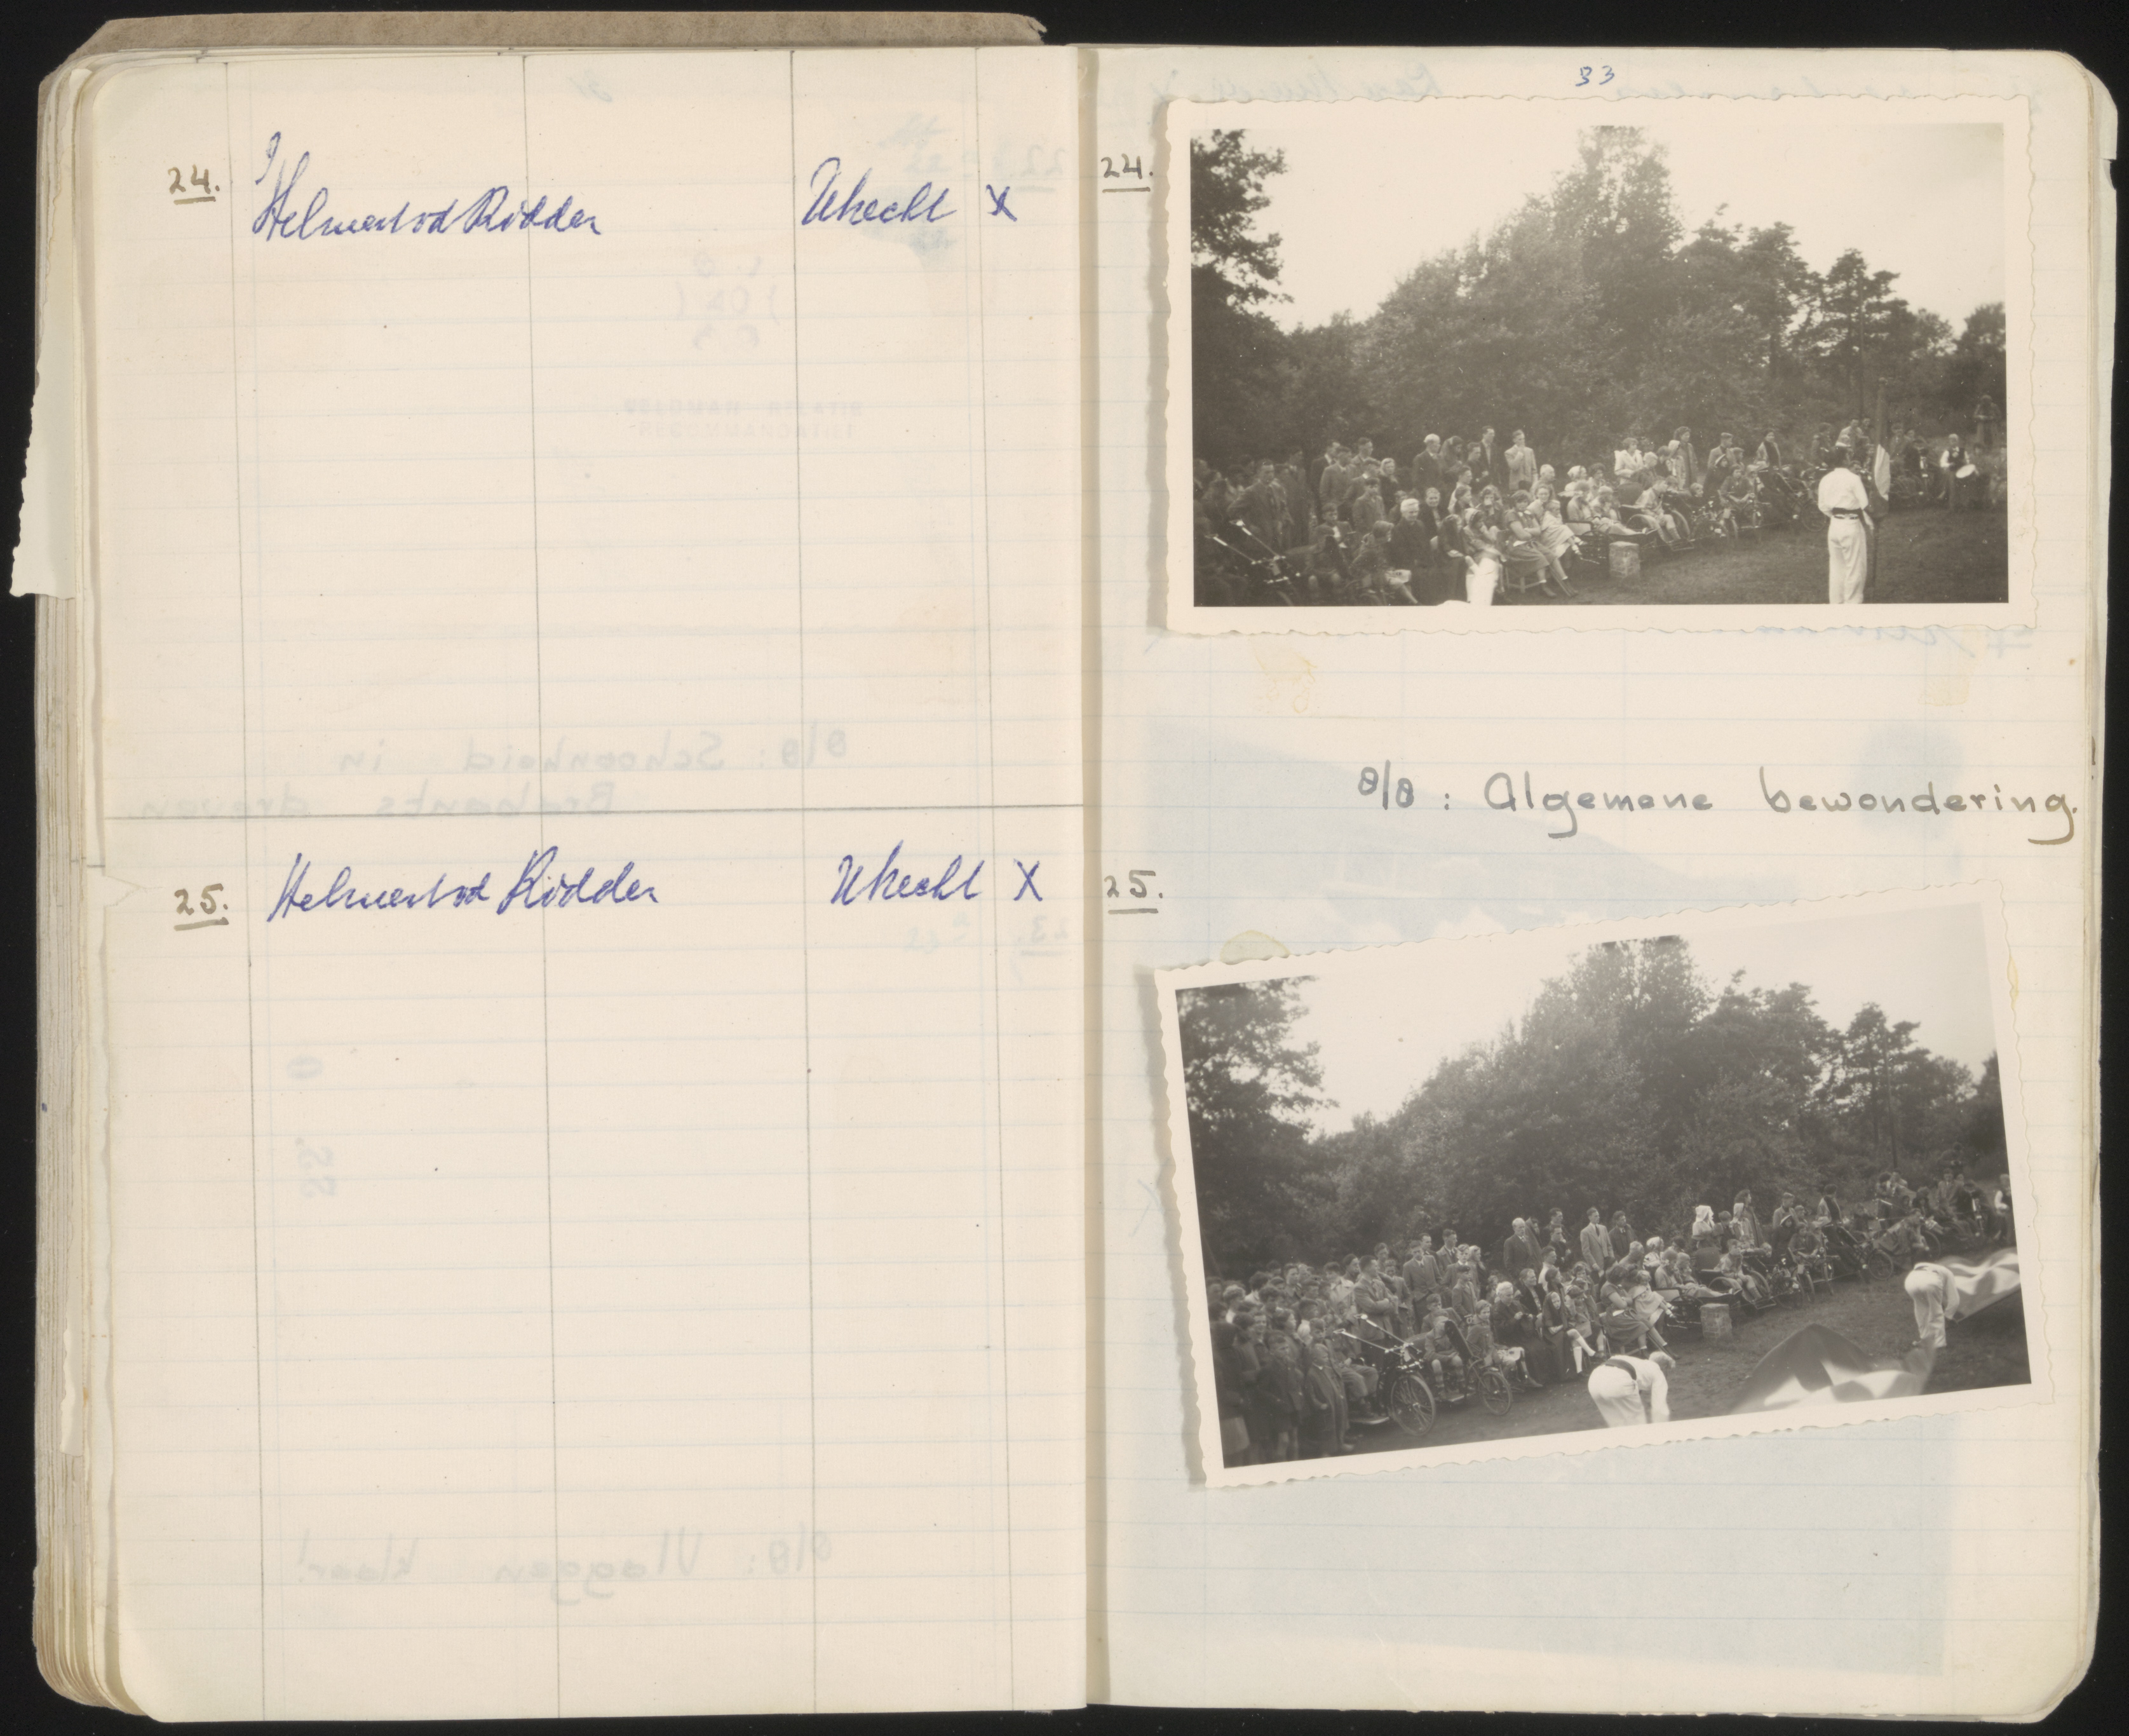 24.
Helmert vd Ridder
Utrecht X
25.
Helmert vd Ridder
Utrecht X
33
24.
8/8: Algemene bewondering.
25.